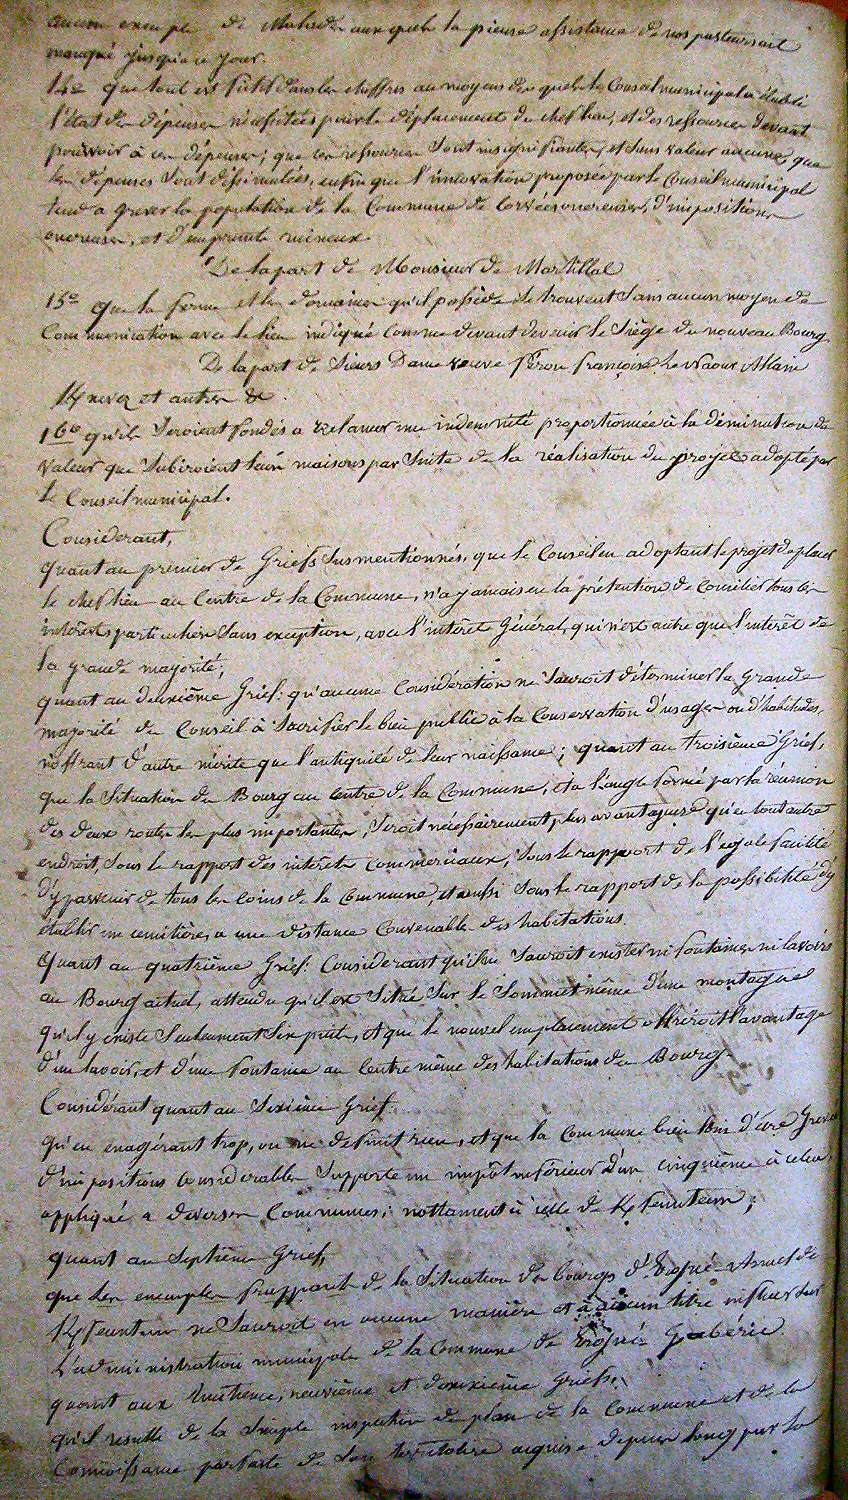 aucun exemple de Malades auxquels la pieuse assistance de nos pasteurs ait
manqué jusqu'à ce jour.
14e que tout est fictif dans les chiffres au moyens desquels le Conseil municipal a établi
l'état des dépenses nécessitées pour le déplacement du chef lieu, et des ressources devant
pourvoir à ces dépenses; que ces ressources sont insignifiantes, et sans valeur aucune, que
les dépenses sont dissimulées, enfin que l'innovation proposée par le Conseil municipal
tend a grever la population de la Commune de Corvées onereuses, d'impositions
onereuses, et d'emprunts ruineux.
De la part de Monsieur de
15e que la ferme et les domaines qu'il possède se trouvent sans aucun moyen de
Communication avec le lieu indiqué comme devant devenir le Siège du nouveau Bourg
De la part de Sieurs Dame veuve françoise Le Naour Allain
et autres &
16e qu'ils Seroient fondés a reclamer une indemnité proportionnée à la diminution de
valeur que Subiroient leurs maisons par Suite de la réalisation du projet adopté par
le Conseil municipal.
Considerant,
quant au premier de Griefs susmentionnés, que le Conseil en adoptant le projet de placer
le chef lieu au Centre de la Commune, n'a jamais eu la prétention de Concilier tous les
intérêts particuliers sans exception, avec l'intérêt Général, qui n'est autre que l'intérêt de
la grande majorité;
quant au deuxième Grief: qu'aucune Considération ne Sauroit déterminer la grande
majorité du Conseil à Sacrifier le bien public à la Conservation d'usages ou d'habitudes,
n'offrant d'autre mérite que l'antiquité de leur naissance; quant au troisième Grief,
que la Situation du Bourg au centre de la Commune, et a l'angle formé par la réunion
des deux routes les plus importantes, Seroit nécessairement, plus avantageuse qu'en tout autre
endroit, Sous le rapport des intérêts Commerciaux, Sous le rapport de l'egale facilité
d'y parvenir de tous les Coins de la Commune, et aussi Sous le rapport de la possibilité d'y
établir un cemitière, a une distance Convenable des habitations.
Quant au quatrième Grief: Considerant qu'il ne Sauroit exister ni fontaines ni lavoirs
au Bourg actuel, attendu qu'il est Situé Sur le Sommet même d'une montagne
qu'il y existe Seulement Six puits, et que le nouvel emplacement offriroit l'avantage
d'un lavoir, et d'une fontaine au Centre même des habitations du Bourg.
Considérant quant au Sixième Grief.
Qu'en exagérant trop, on ne definit rien, et que la Commune bien loin d'être Grevée
d'impositions Considerables Supporte un impôt inférieur d'un cinquième à celui,
appliqué a diverses Communes; nottament à celle de Kfeunteun;
quant au Septième Grief,
que les exemples frappants de la Situation des bourgs d'Ergué-Armel de
Kfeunteun ne Sauroit en aucune manière et à aucun titre influer sur
L'administration municipale de la Commune de Ergué Gabéric.
quant aux huitième, neuvième et dixième Griefs,
qu'il resulte de la Simple inspection du plan de la Commune et de la
Connoissance parfaite de Son territoire acquise depuis long par la